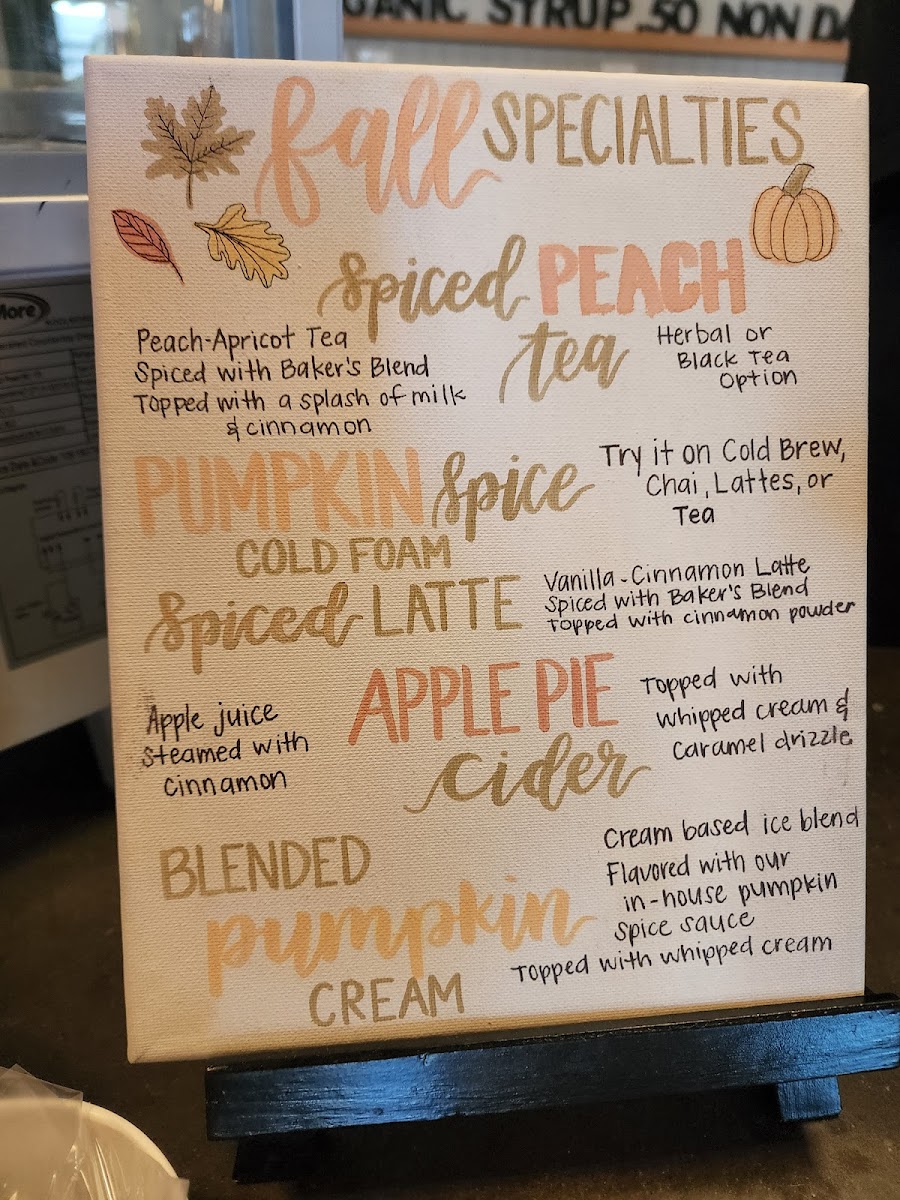 GANIC SYRUP .50 NON DA
fall SPECIALTIES
spiced PEACH
tea
Peach-Apricot Tea
Spiced with Baker's Blend
Topped with a splash of milk
& cinnamon
Herbal or
Black Tea
Option
PUMPKIN spice
COLD FOAM
Try it on Cold Brew,
Chai, Lattes, or
Tea
spiced LATTE
Vanilla-Cinnamon Latte
Spiced with Baker's Blend
Topped with cinnamon powder
APPLE PIE
cider
Apple juice
Steamed with
cinnamon
Topped with
whipped cream &
caramel drizzle
BLENDED
pumpkin
CREAM
Cream based ice blend
Flavored with our
in-house pumpkin
spice sauce
Topped with whipped cream
More